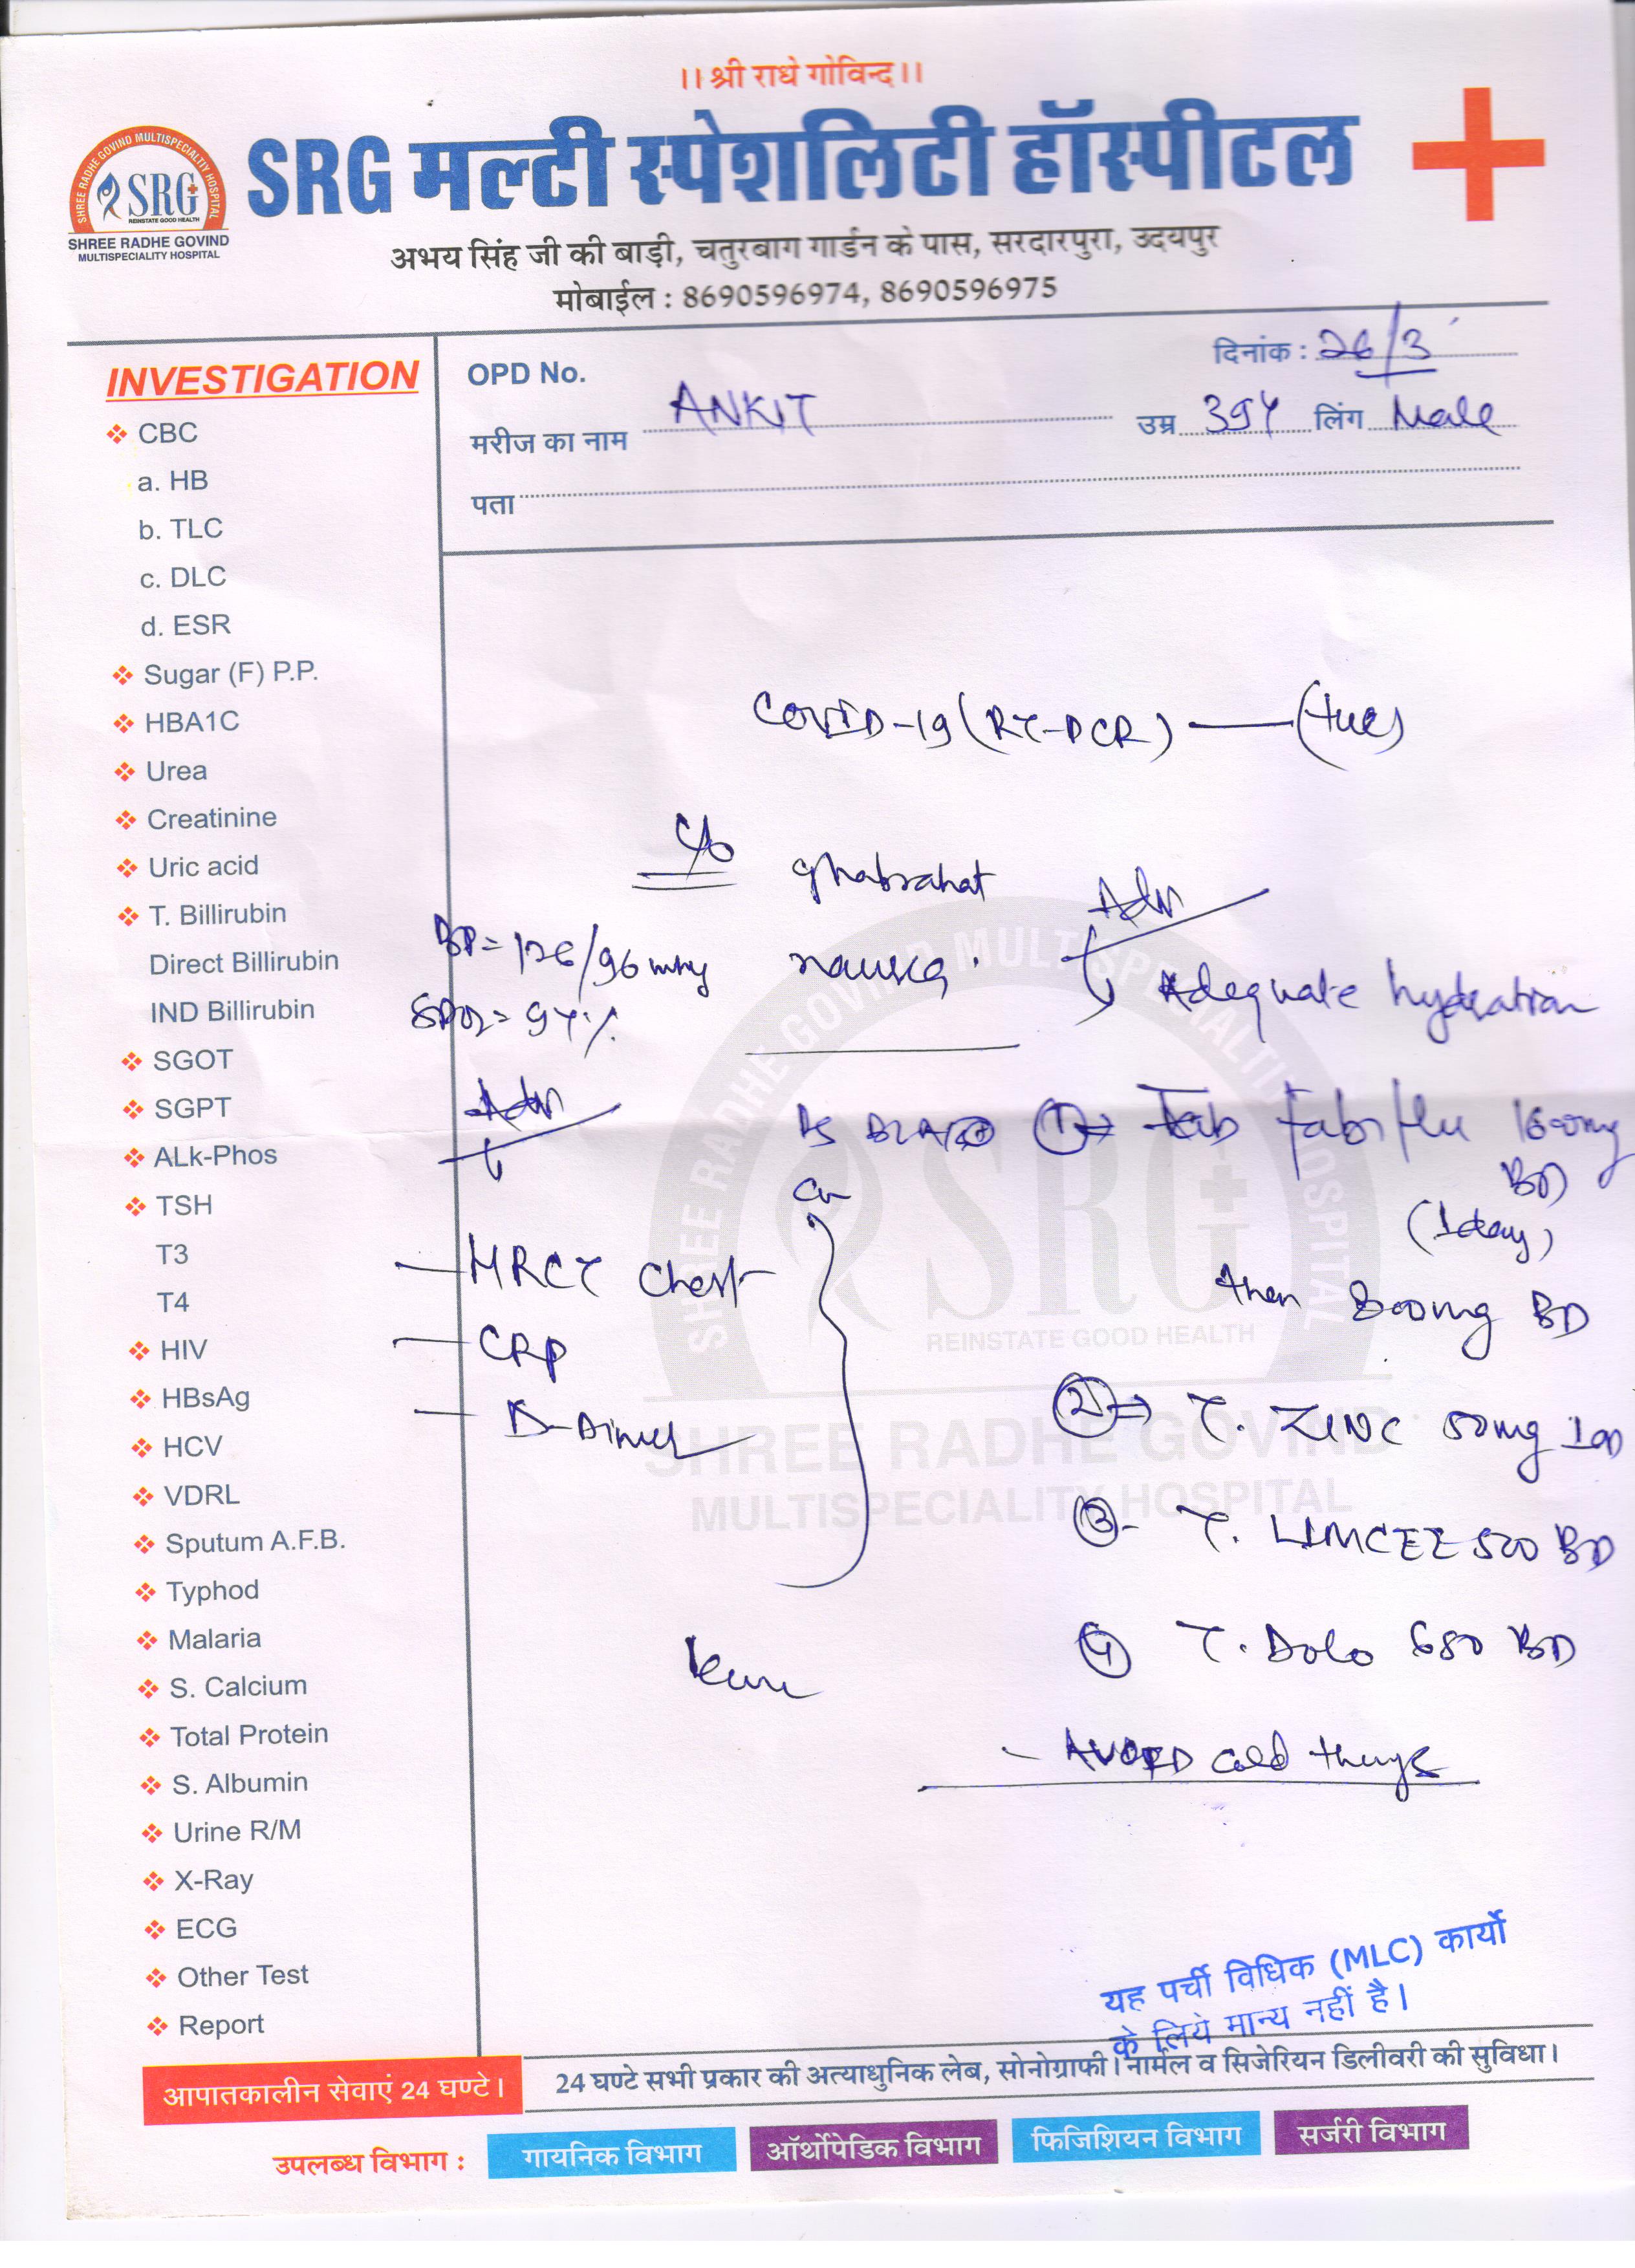 ।। श्री राधे गोविन्द ।।
SHREE RADHE GOVIND MULTISPECIALTIY HOSPITAL
SRG
REINSTATE GOOD HEALTH
SHREE RADHE GOVIND
MULTISPECIALITY HOSPITAL
SRG मल्टी स्पेशलिटी हॉस्पीटल
अभय सिंह जी की बाड़ी, चतुरबाग गार्डन के पास, सरदारपुरा, उदयपुर
मोबाईल : 8690596974, 8690596975
दिनांक : 26/3
OPD No.
मरीज का नाम ANKIT उम्र 39Y लिंग Male
पता
INVESTIGATION
CBC
a. HB
b. TLC
c. DLC
d. ESR
Sugar (F) P.P.
HBA1C
Urea
Creatinine
Uric acid
T. Billirubin
Direct Billirubin
IND Billirubin
SGOT
SGPT
ALk-Phos
TSH
T3
T4
HIV
HBsAg
HCV
VDRL
Sputum A.F.B.
Typhod
Malaria
S. Calcium
Total Protein
S. Albumin
Urine R/M
X-Ray
ECG
Other Test
Report
COVID-19 (RT-PCR) — (+ve)
C/o ghabrahat
nausea
BP = 126/96 mmHg
SPO2 = 97%
Adv
HRCT Chest
CRP
D-Dimer
Adv
Adequate hydration
1 Tab fabiflu 1600mg
BD
(1day)
then 800mg BD
2 T. ZINC 50mg 1OD
3 - T. LIMCEE 500 BD
4 T. Dolo 650 BD
- AVOID cold things
SHREE RADHE GOVIND MULTISPECIALTIY HOSPITAL
SRG
REINSTATE GOOD HEALTH
SHREE RADHE GOVIND
MULTISPECIALITY HOSPITAL
यह पर्ची विधिक (MLC) कार्यो
के लिये मान्य नहीं है।
आपातकालीन सेवाएं 24 घण्टे।
24 घण्टे सभी प्रकार की अत्याधुनिक लेब, सोनोग्राफी। नार्मल व सिजेरियन डिलीवरी की सुविधा।
उपलब्ध विभाग : गायनिक विभाग ऑर्थोपेडिक विभाग फिजिशियन विभाग सर्जरी विभाग